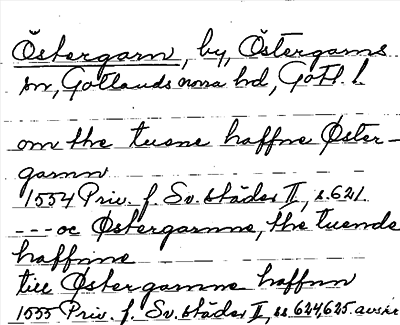 Östergarn, by, Östergarns
sn, Gotlands norra hd, Gotl. l.
om the tuene haffne Øster-
gamn
1554 Priv. f. Sv. städer II, s. 621
--- oc Østergamne, the tuende
haffnne
till Østergamne haffnn
1555 Priv. f. Sv. städer II, ss. 624,625. avskr